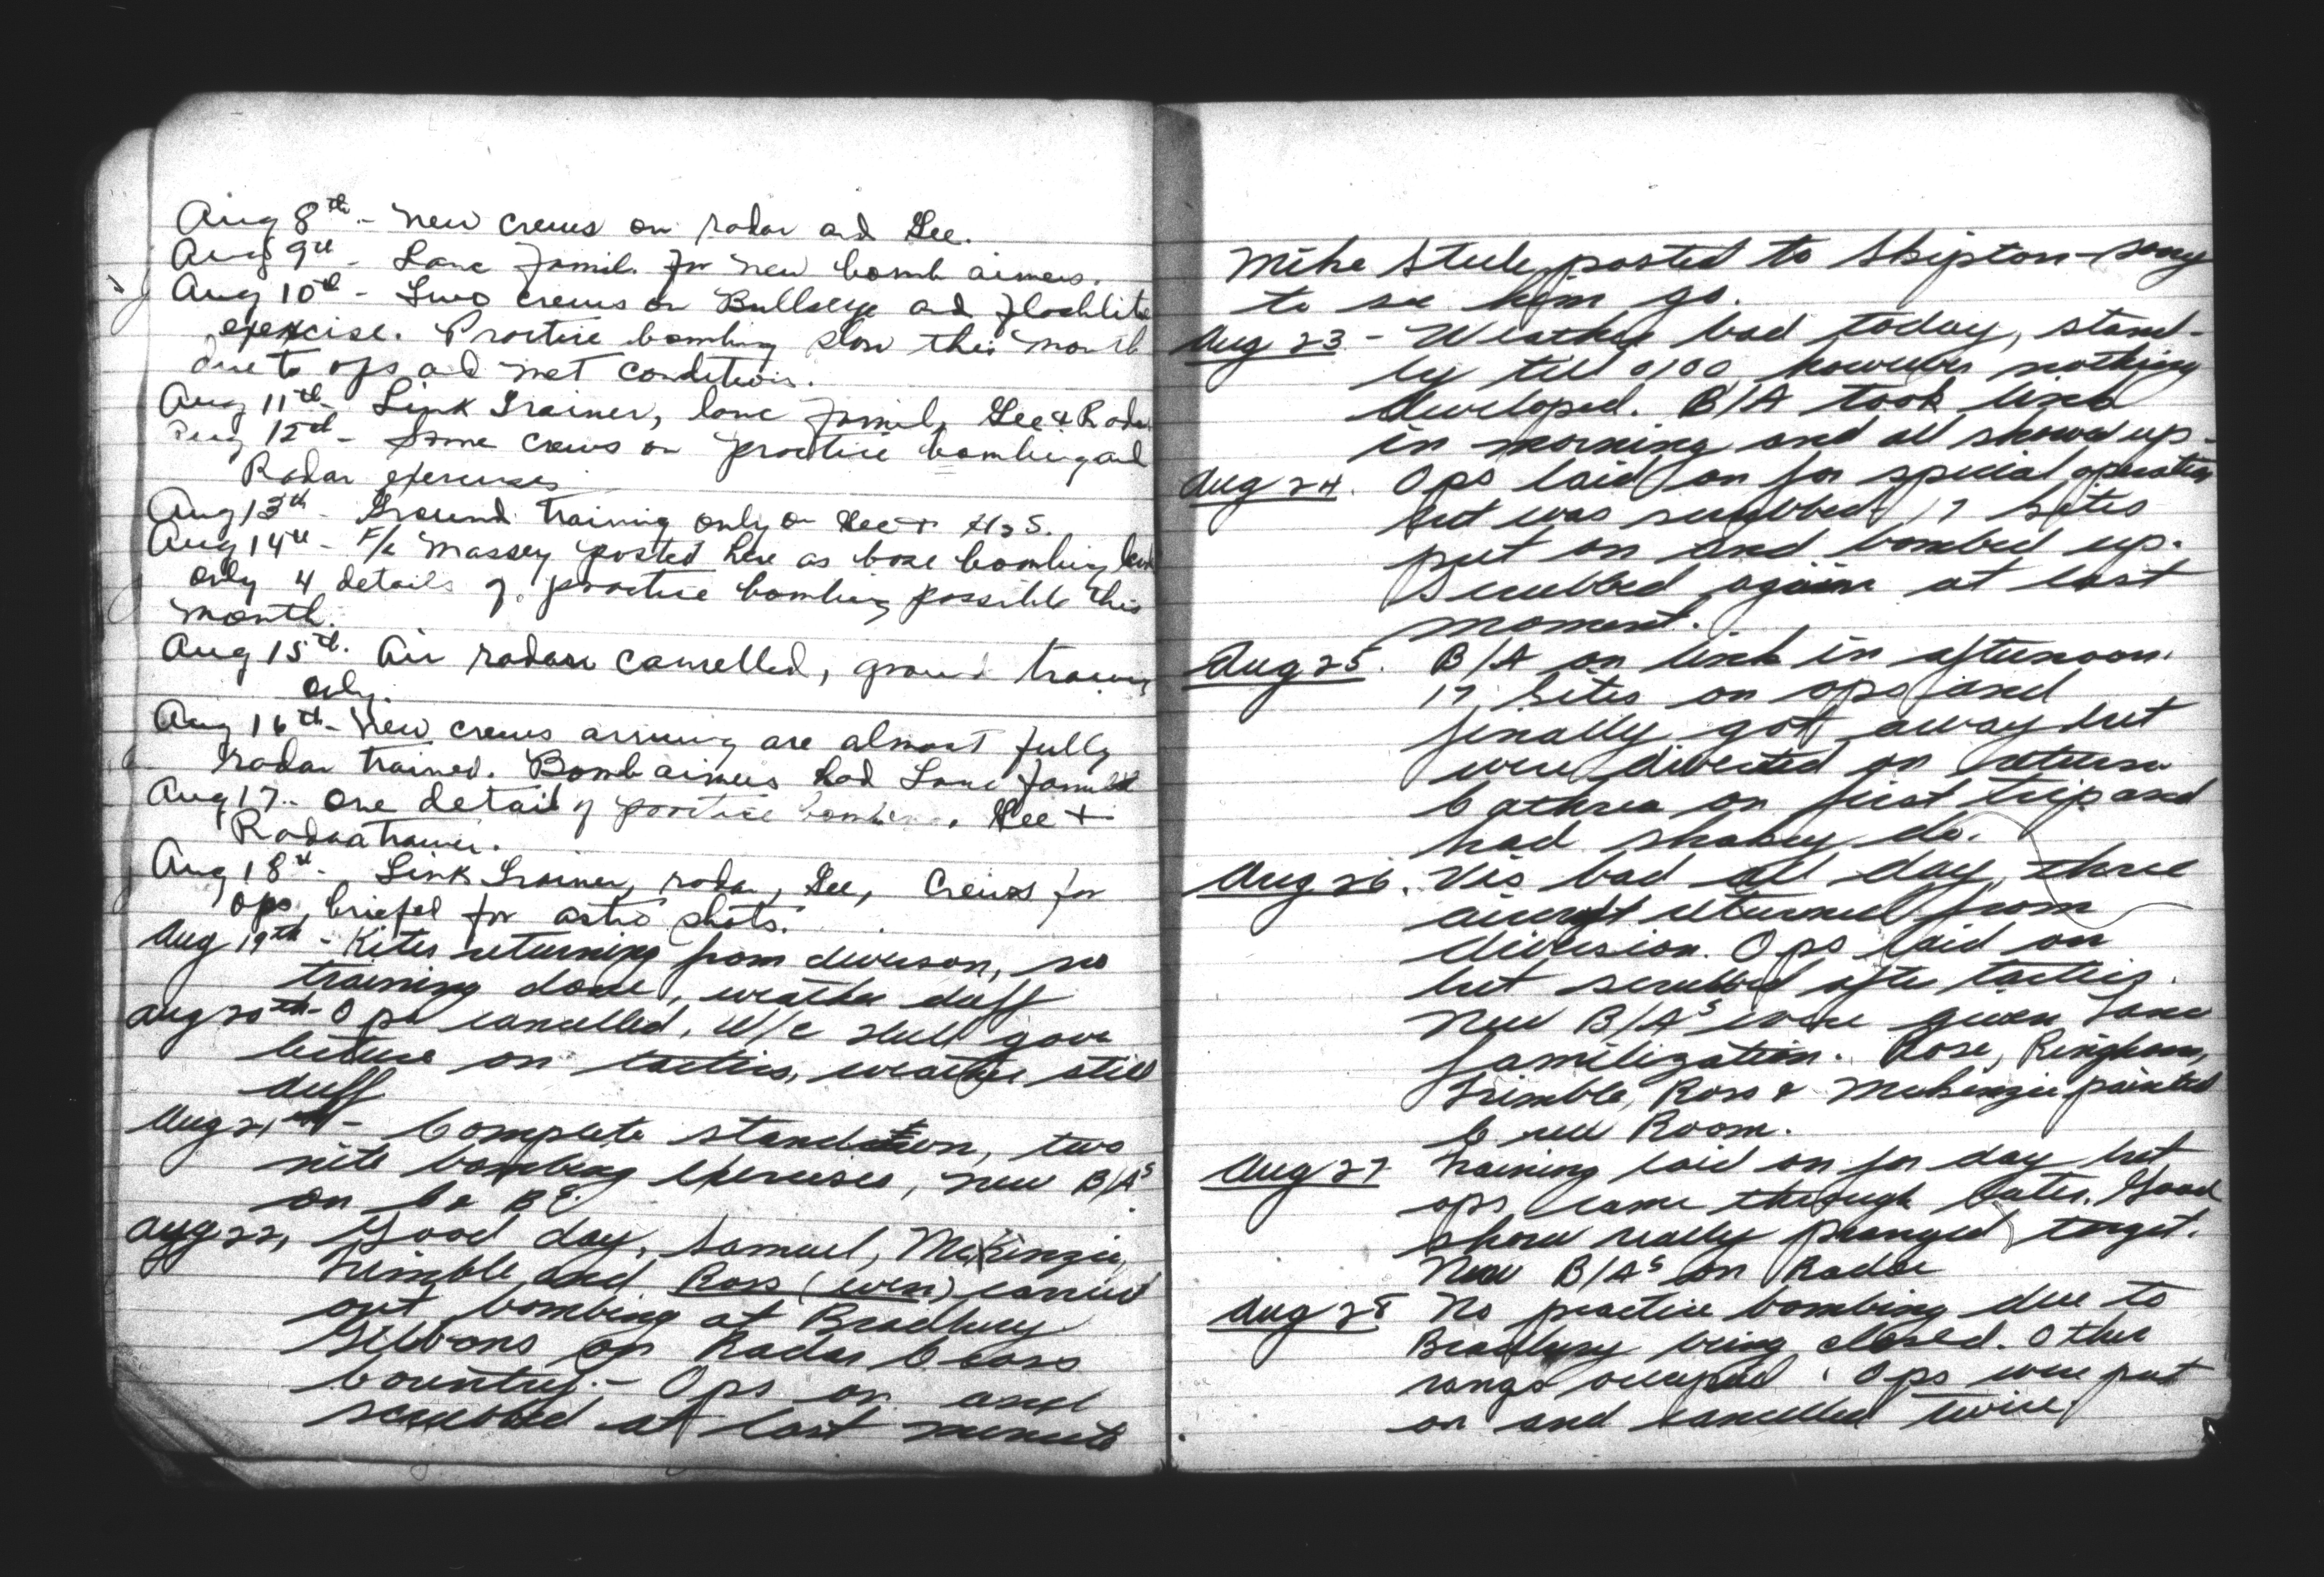 Aug 8th - New crews on radar and Gee.
Aug 9th - Lanc famil. for new bomb aimers.
Aug 10th - Two crews on Bullseye and flashlite
exercise. Practice bombing slow this month
due to ops and met conditions.
Aug 11th - Link Trainer, lanc famil, Gee & Radar
Aug 12th - Some crews on practice bombing and
Radar exercises
Aug 13th - Ground training only on Gee + H2S.
Aug 14th - F/L Massey posted here as base bombing
only 4 details of practice bombing possible this
month.
Aug 15th. Air radar cancelled, ground training
only.
Aug 16th - New crews arriving are almost fully
radar trained. Bomb aimers had Lanc famil
Aug 17 - One detail of practice bombing. Gee +
Radar trainer.
Aug 18th - Link Trainer, radar, Gee, Crews for
ops, briefed for astro shots.
Aug 19th - Kites returning from diverson, no
training done, weather duff
Aug 20th - Ops cancelled, W/C gave
lecture on tactics, weather still
duff
Aug 21st - Complete standdown, two
nite bombing exercises, new B/As
on
Aug 22, Good day, Samuel, McKenzie,
Trimble, and Ross (even) carried
out bombing at Bradbury
Gibbons on Radar Cross
Country. - Ops on and
scrubbed at last minute
Mike Steele posted to Skipton - sorry
to see him go.
Aug 23 - Weather bad today, stand-
by till 0100 however nothing
developed. B/A took link
in morning and all showed up -
Aug 24. Ops laid on for special operation
but was scrubbed. 17 kites
put on and bombed up.
Scrubbed again at last
moment.
Aug 25. B/A on link in afternoon.
17 kites on ops and
finally got away but
were diverted on return
on first trip and
had shakey do.
Aug 26. Vis bad all day, three
aircraft returned from
diversion. Ops laid on
but scrubbed after tactics.
New B/As were given Lanc
familization. Rose, Ringham,
Trimble, Ross & McKenzie painted
Crew Room.
Aug 27 Training laid on for day but
ops came through later. Good
show really pranged target.
New B/As on Radar
Aug 28 No practice bombing due to
Bradbury being closed. Other
range occupied. Ops were put
on and cancelled twice.